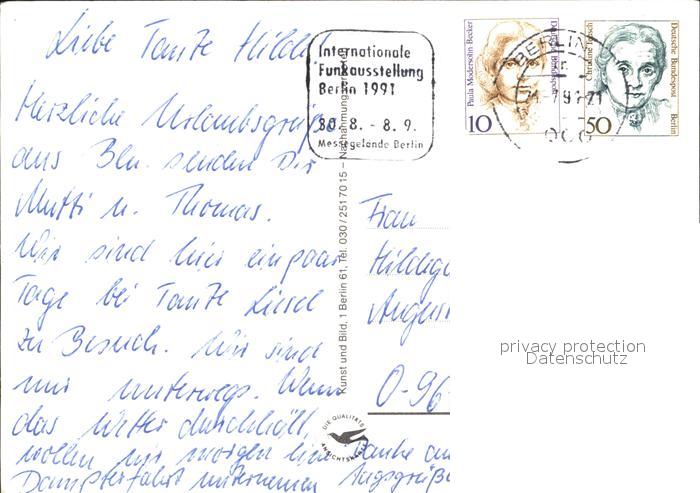 Liebe Tante Hilde!
Herzliche Urlaubsgrüße
aus Bln. senden Dir
Mutti u. Thomas.
Wir sind hier ein paar
Tage bei Tante Liesel
zu Besuch. Wir sind
nur unterwegs. Wenn
das Wetter durchhält,
wollen wir morgen eine
Dampferfahrt unternehmen
Internationale
Funkausstellung
Berlin 1991
30. 8. - 8. 9.
Messegelände Berlin
Paula Modersohn-Becker
Deutsche Bundespost
10
Christine Teusch
Deutsche Bundespost
Berlin
50
BERLIN
Kunst und Bild, 1 Berlin 61, Tel. 030 / 251 70 15 – Nachahmung verboten
DIE QUALITÄTS
ANSICHTSKARTE
Frau
Hildeg
August
O-96
privacy protection
Datenschutz